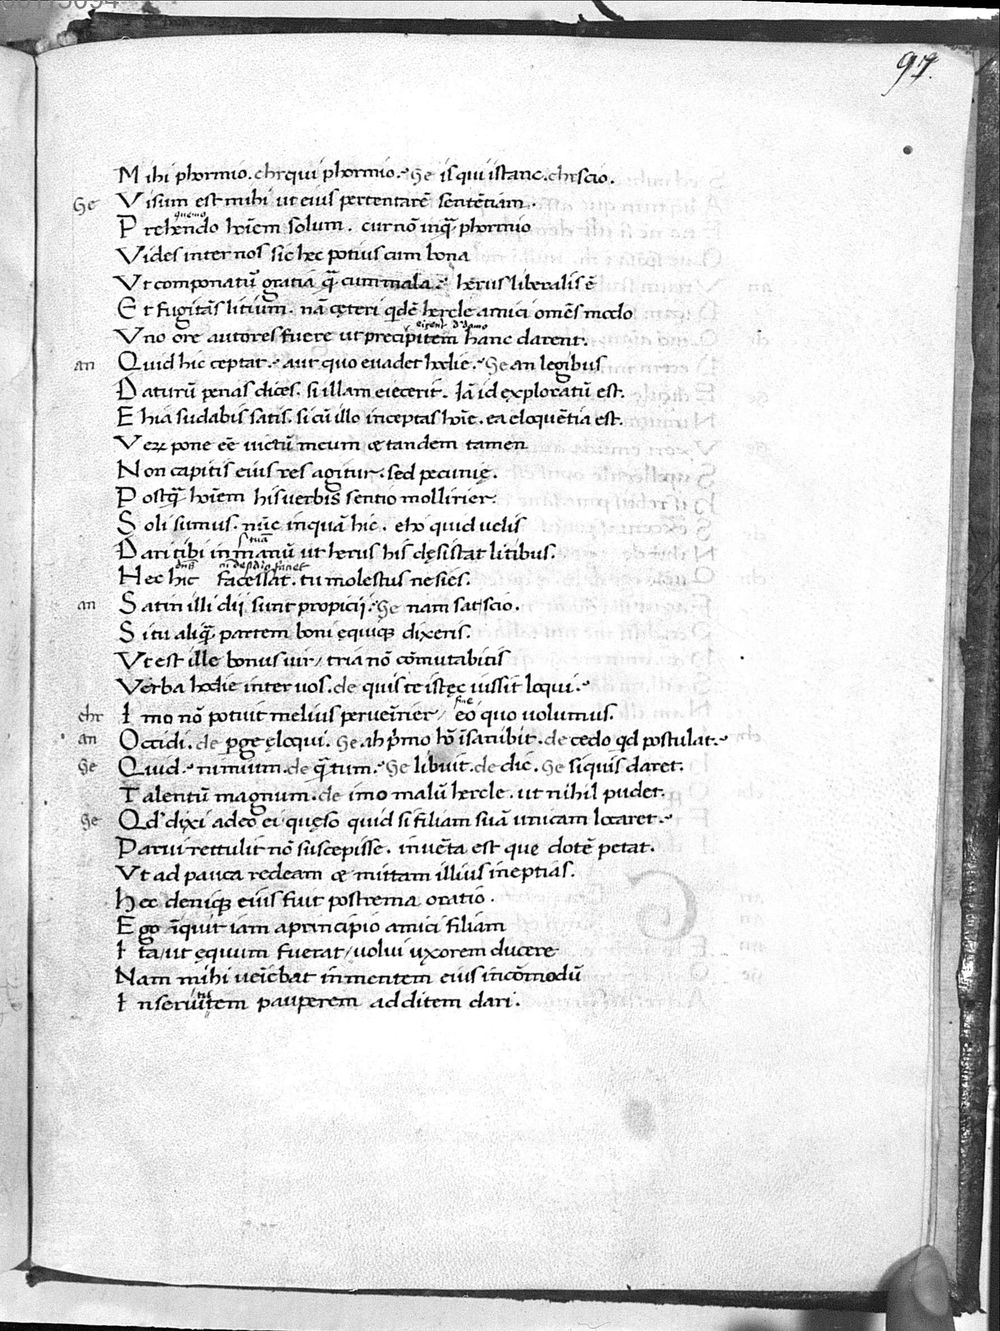 97.
Mihi phormio. chr qui phormio. Ge is qui istanc. chr scio.
Ge Visum est mihi ut eius pertentarē sentētiam.
Prehendo hoīem solum. cur nō inq̄ phormio
Vides inter nos sic hec potius cum bona
Vt componatur̄ gratia q̄ cum mala. herus liberalis ē
Et fugitās litium. nā cęteri qdē hercle amici omēs modo
Vno ore autores fuere ut precipitem hanc darent.
an Quid hic ceptat. aut quo euadet hodie. Ge an legibus
Daturū penas dices. si illam eiecerit. Iā id exploratū est.
Ehia sudabis satis. si cū illo inceptas hoīe. ea eloquētia est.
Verꝝ pone eē uictū meum & tandem tamen
Non capitis eius res agitur. sed pecunię.
Postq̄ hoīem his uerbis sentio mollirier.
Soli sumus. nūc inquā hic. eho quid uelis
Dari tibi in manū ut herus his desistat litibus.
Hec hic facessat. tu molestus ne sies.
an Satin illi dij sunt propicij. Ge nam sat scio.
Si tu aliq̄ partem boni ęquiqꝫ dixeris.
Vt est ille bonus uir, tria nō cōmutabitis
Verba hodie inter uos. de quis te istęc iussit loqui.
chr Imo nō potuit melius perueīrier / eo quo uolumus.
an Occidi. de ꝑge ęloqui. Ge ah p̄mo hō īsanibit. de cedo qd postulat.
Ge Quid. nimium. de q̄tum. Ge libuit. de dic. Ge si quis daret.
Talentū magnum. de imo malū hercle. ut nihil pudet.
Ge Qd dixi adeo ei quęso quid si filiam suā unicam locaret.
Parui rettulit nō suscepisse. inuēta est que dotē petat.
Vt ad pauca redeam & mittam illius ineptias.
Hec deniqꝫ eius fuit postrema oratio.
Ego īquit iam a principio amici filiam
Ita/ut ęquum fuerat/uolui uxorem ducere
Nam mihi ueīebat in mentem eius incōmodū
In seruitem pauperem ad ditem dari.